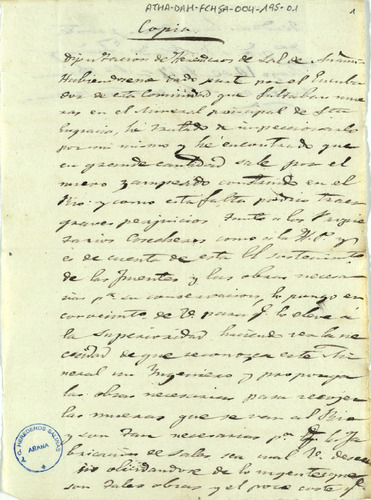 ATHA-DAH-FCHSA-004-195-01
1
Copia
Diputacion de Herederos de Sal de Añana
Habiendoseme dado parte por el Encarga
dor de esta Comunidad que faltaban mue
ras en el Mineral principal de Sta
Engracia, he tratado de inspeccionarlo
por mi mismo y he encontrado que
en grande cantidad sale por el
nuevo zampeado construido en el
Rio. y como esta falta podria traer
graves perjuicios tanto a los Propie
tarios Cosecheros como a la H.P. y
es de cuenta de esta el sostenimiento
de las fuentes y las obras necesa
rias pa. su conservacion, lo pongo en
conocimto. de V. para q. lo eleve á
la Superioridad haciendo ver la ne
cesidad de que reconozca este Mi
neral un Ingeniero y proponga
las obras necesarias para recoger
las mueras que se van al Rio
y son tan necesarias pa. la fa
bricacion de sales en cual V.
no olvidandose de lo urgentes que
son tales obras y el poco coste q.
C. HEREDEROS SALINAS
AÑANA